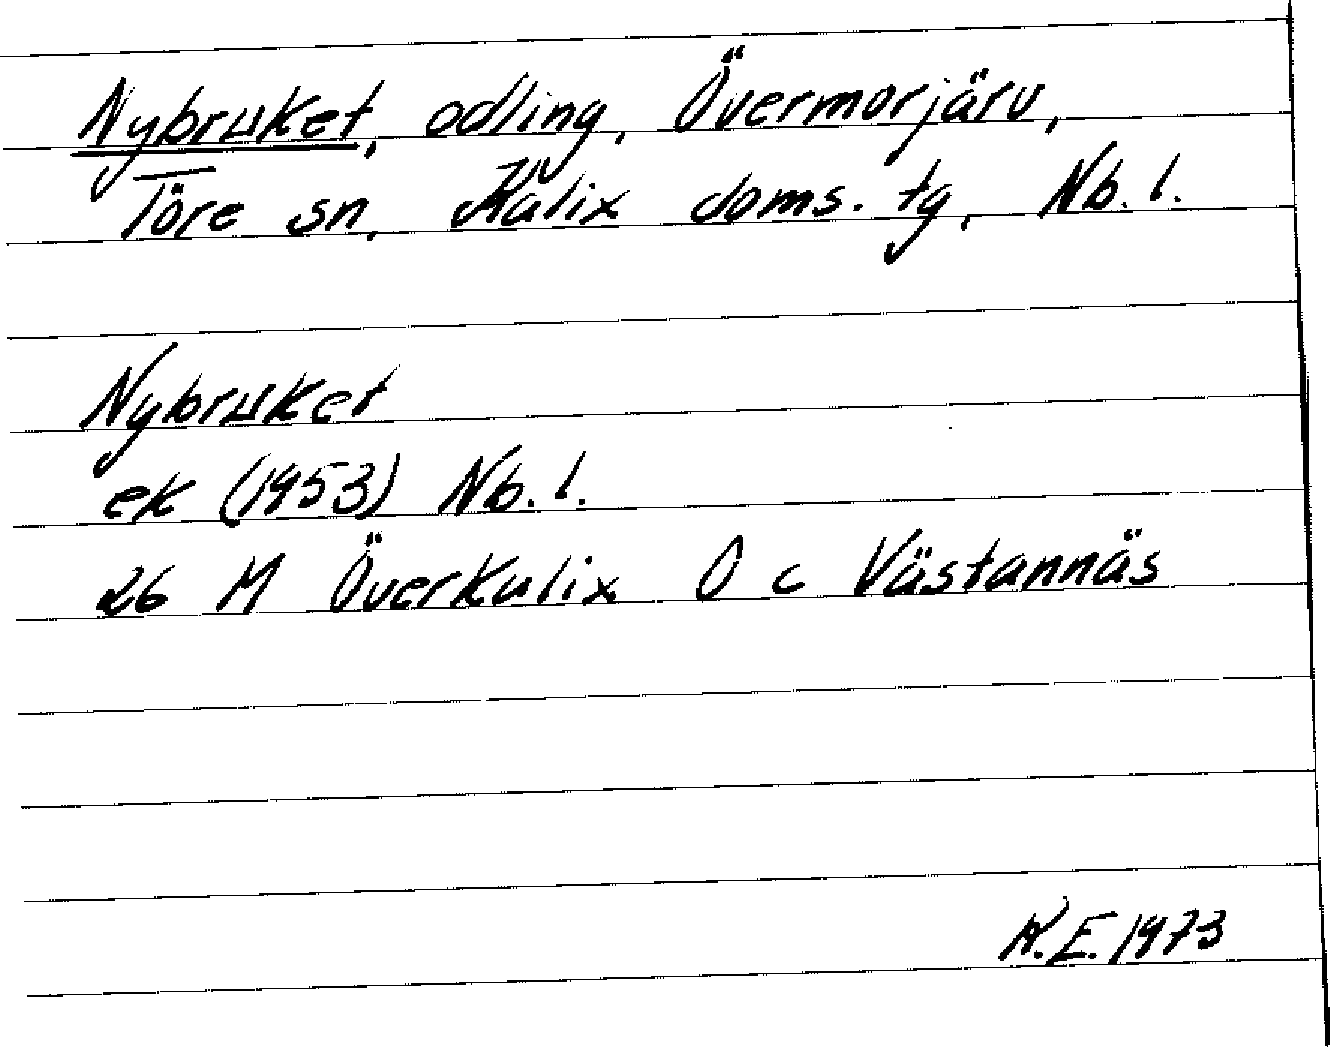 Nybruket, odling, Övermorjärv,
Töre sn, Kalix doms. tg, Nb. l.
Nybruket
ek (1953) Nb. l.
26 M Överkalix O c Västannäs
K.E. 1973